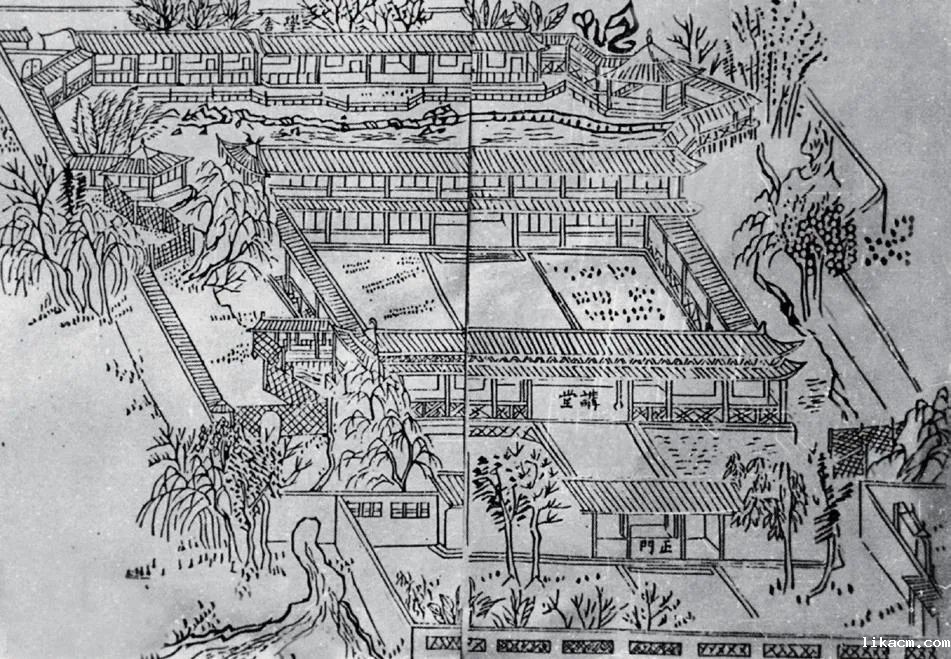 學舍
講堂
正門
likacm.com